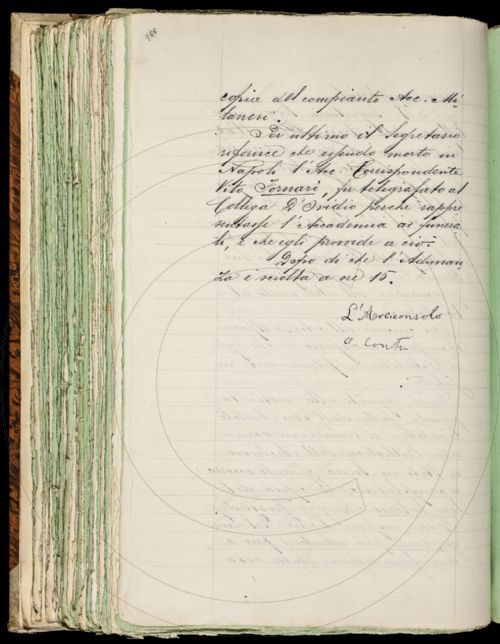 166
copia del compianto Acc. Mi-
lanesi.
Per ultimo il Segretario
riferisce che essendo morto in
Napoli l'Acc. Corrispondente
Vito Fornari, fu telegrafato al
Collega D'Ovidio perchè rappre
sentasse l'Accademia ai funera
li, e che egli provvide a ciò.
Dopo di che l'Adunan-
za è sciolta a ore 15.
L'Arciconsolo
A. Conti